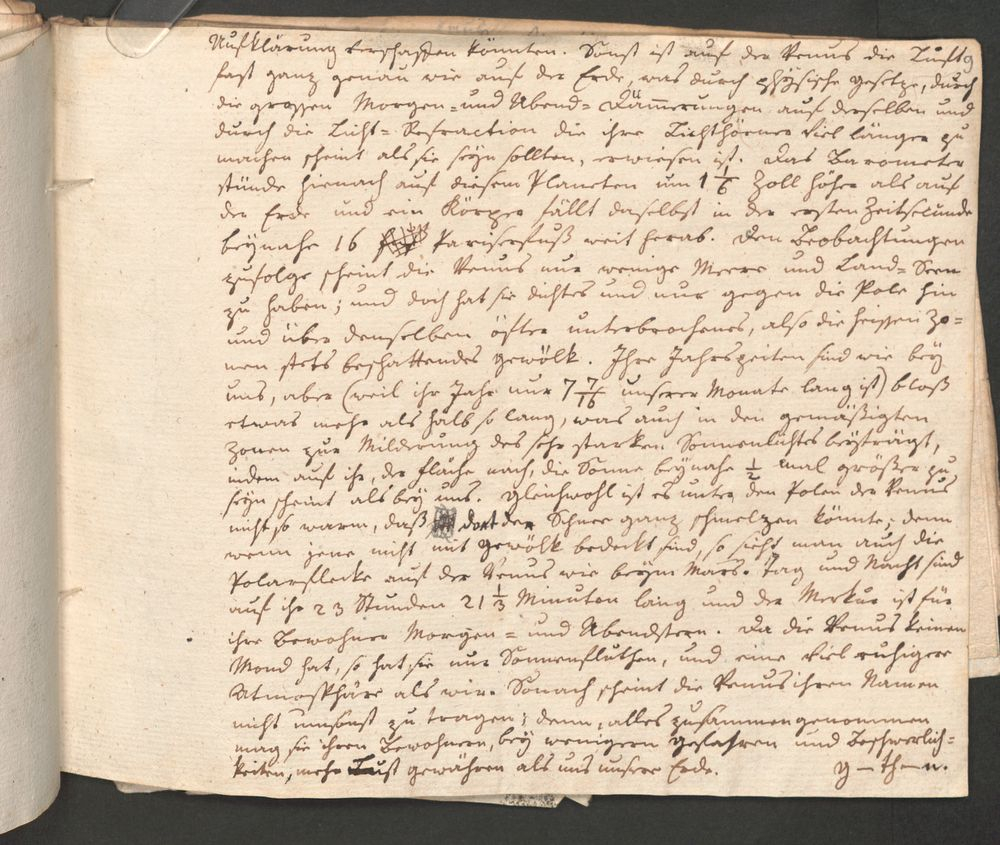 Aufklärung verschaffen könnten. Sonst ist auf der Venus die Luft 9
fast ganz genau wie auf der Erde, was durch physische Gesetze, durch
die grossen Morgen- und Abend-Dämerungen auf derselben und
durch die Licht-Refraction die ihre Lichthörner viel länger zu
machen scheint als sie seyn sollten, erwiesen ist. Das Barometer
stünde hienach auf diesem Planeten um 1 1/6 Zoll höher als auf
der Erde und ein Körper fällt daselbst in der ersten Zeitsecunde
beynahe 16 Pariserfuß weit herab. Den Beobachtungen
zufolge scheint die Venus nur wenige Meere und Land-Seen
zu haben; und doch hat sie dichtes und nur gegen die Pole hin
und über denselben öfter unterbrochenes, also die heissen Zo-
nen stets beschattendes Gewölk. Ihre Jahrszeiten sind wie bey
uns, aber (weil ihr Jahr nur 7 7/16 unserer Monate lang ist) bloß
etwas mehr als halb so lang, was auch in den gemäßigten
Zonen zur Milderung des sehr starken Sonnenlichtes beyträgt,
indem auf ihr, der Fläche nach, die Sonne beynahe 1/2 mal größer zu
seyn scheint als bey uns. Gleichwohl ist es unter den Polen der Venus
nicht so warm, daß dort der Schnee ganz schmelzen könnte; denn
wenn jene nicht mit Gewölk bedeckt sind, so sieht man auch die
Polarflecke auf der Venus wie beym Mars. Tag und Nacht sind
auf ihr 23 Stunden 21 1/3 Minuten lang und der Merkur ist für
ihre Bewohner Morgen- und Abendstern. Da die Venus keinen
Mond hat, so hat sie nur Sonnenfluthen, und eine viel ruhigere
Atmosphäre als wir. Sonach scheint die Venus ihren Namen
nicht umsonst zu tragen; denn, alles zusammengenommen
mag sie ihren Bewohnern, bey wenigern Gefahren und Beschwerlich-
keiten, mehr Lust gewähren als uns unsere Erde. G-th-n.